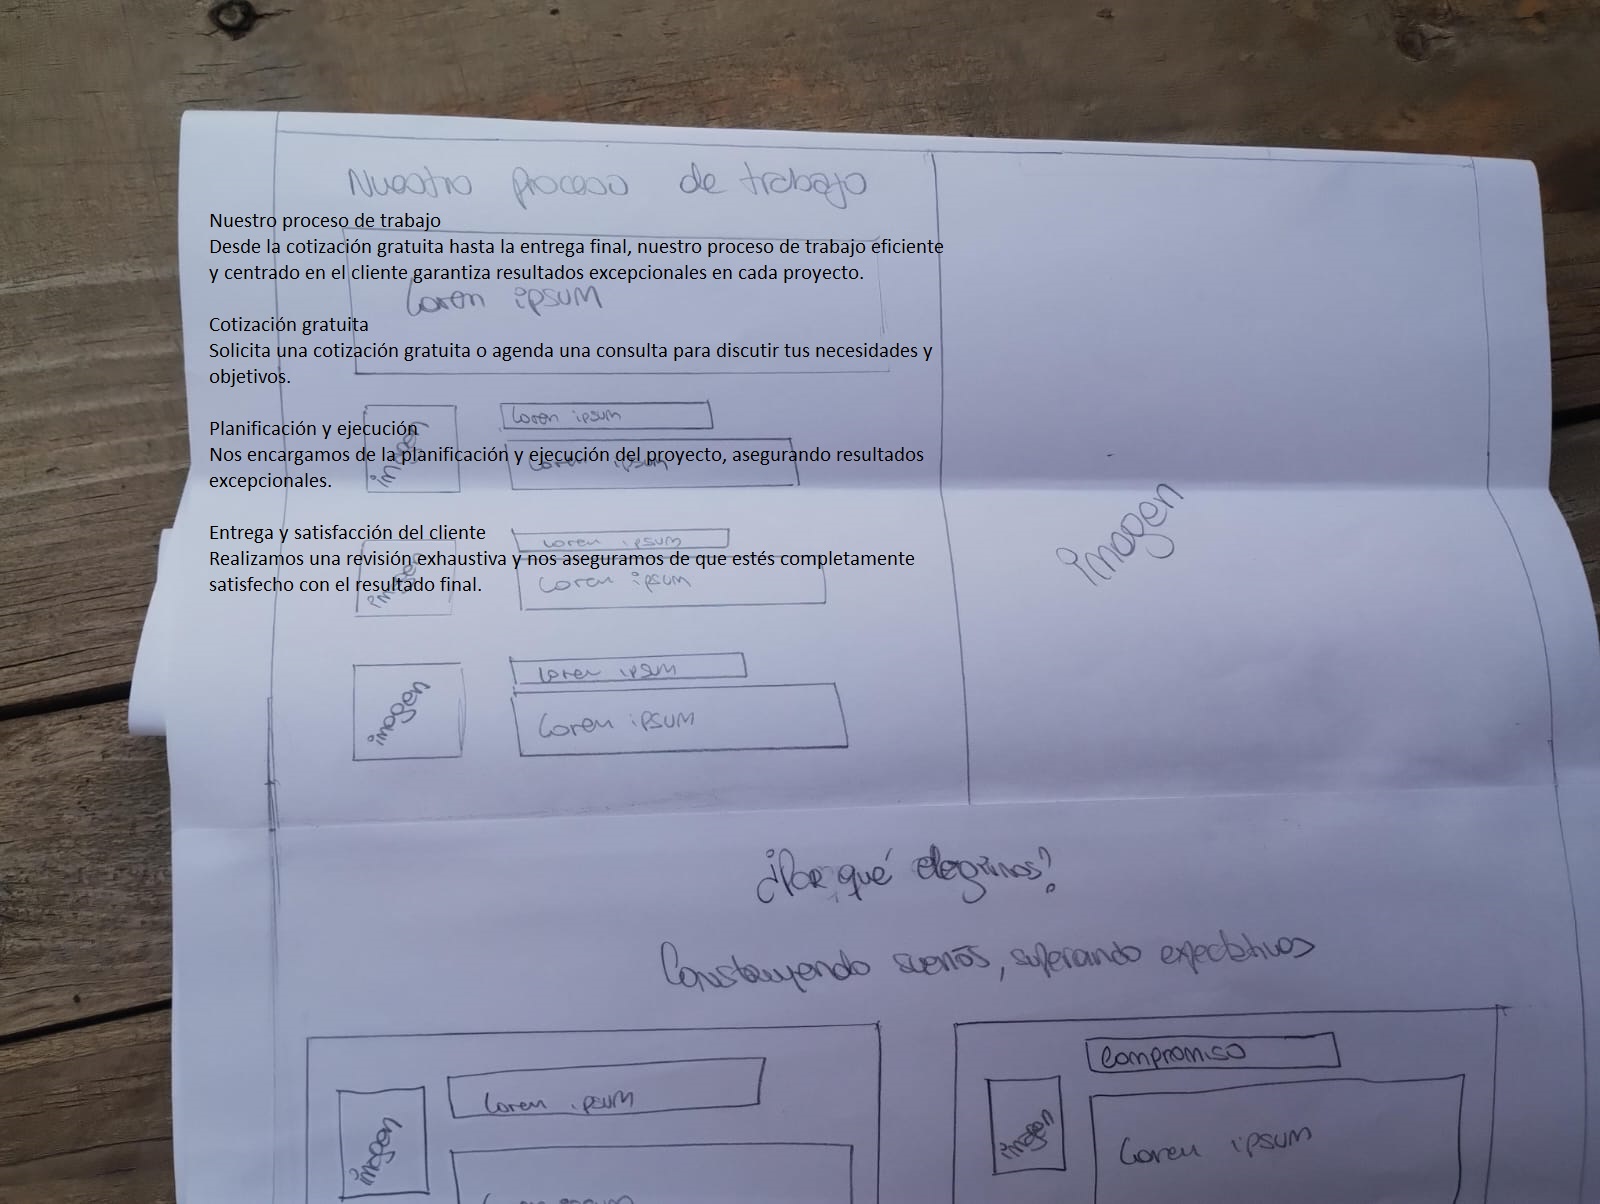 Nuestro proceso de trabajo
Nuestro proceso de trabajo
Desde la cotización gratuita hasta la entrega final, nuestro proceso de trabajo eficiente
y centrado en el cliente garantiza resultados excepcionales en cada proyecto.
Loren ipsum
Cotización gratuita
Solicita una cotización gratuita o agenda una consulta para discutir tus necesidades y
objetivos.
Loren ipsum
Planificación y ejecución
imagen
Nos encargamos de la planificación y ejecución del proyecto, asegurando resultados
Loren ipsum
excepcionales.
Entrega y satisfacción del cliente
Loren ipsum
Realizamos una revisión exhaustiva y nos aseguramos de que estés completamente
satisfecho con el resultado final.
imagen
Loren ipsum
imagen
Loren ipsum
imagen
Loren ipsum
¿Por qué elegirnos?
Construyendo sueños, superando expectativas
imagen
Loren ipsum
Compromiso
imagen
Loren ipsum